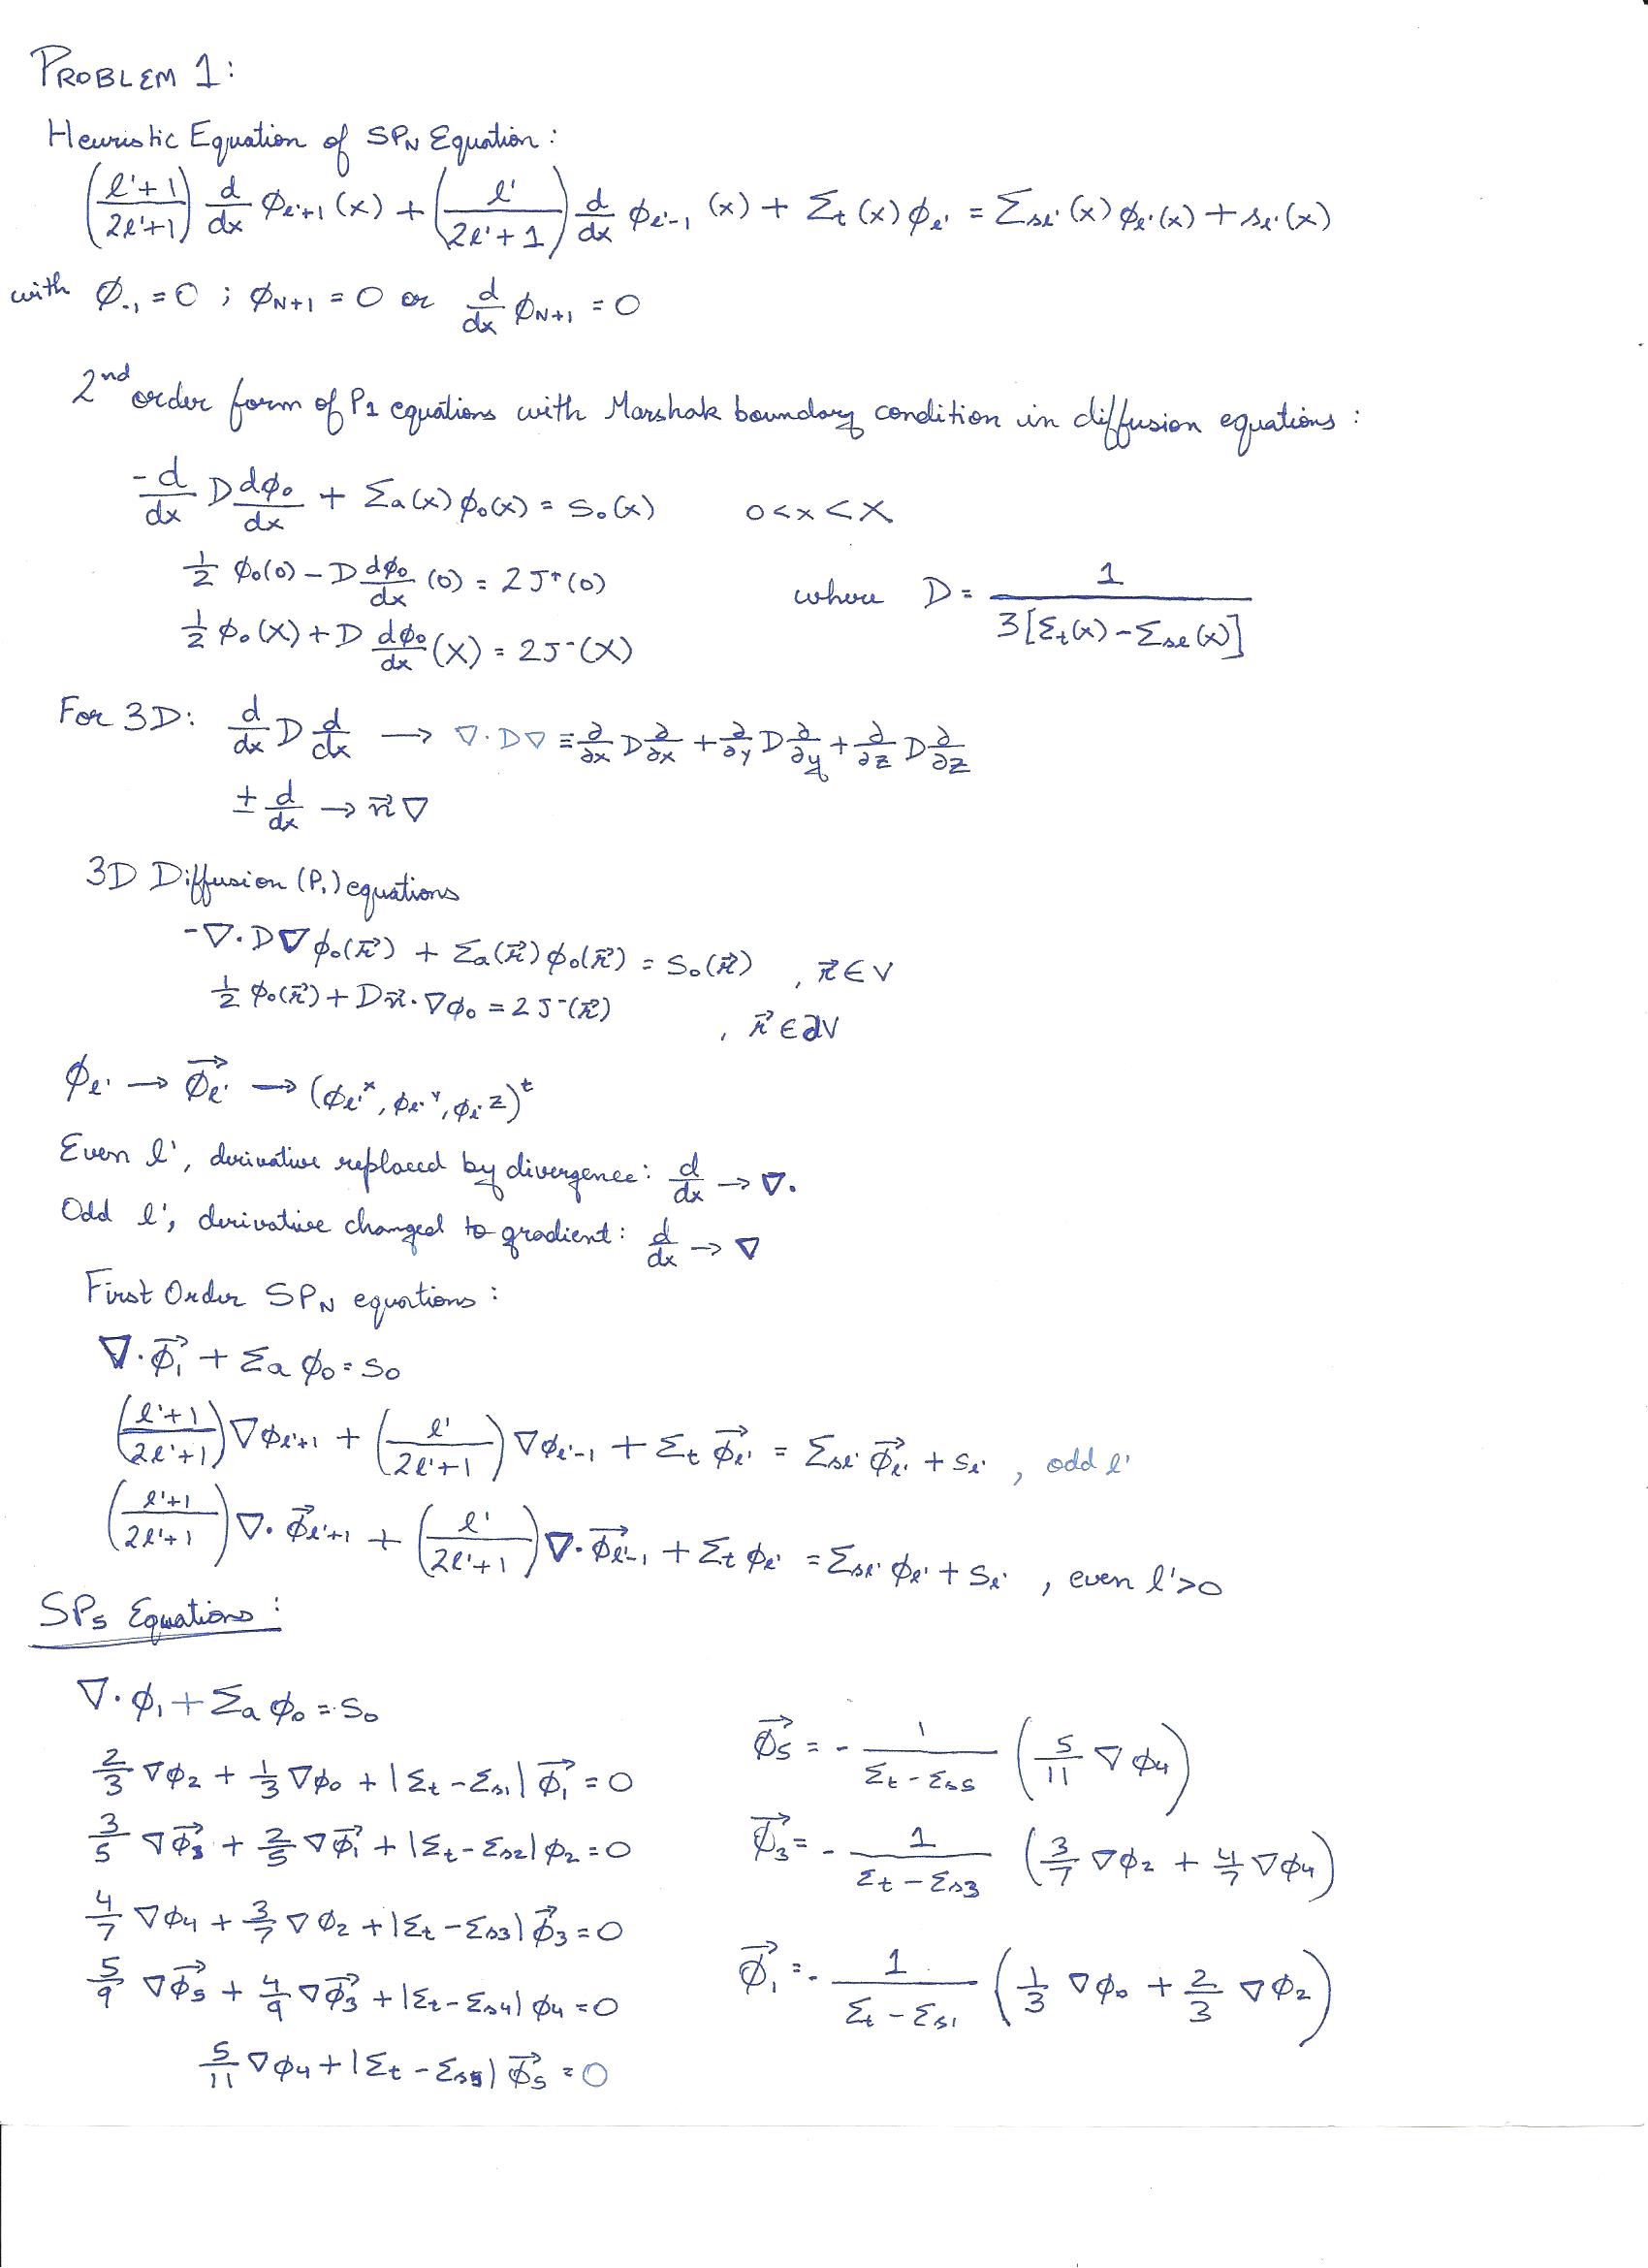 PROBLEM 1:
Heuristic Equation of SPN Equation:
((l'+1)/(2l'+1)) d/dx ϕl'+1 (x) + (l'/(2l'+1)) d/dx ϕl'-1 (x) + Σt (x) ϕl' = Σsl' (x) ϕl' (x) + sl' (x)
with ϕ-1 = 0 ; ϕN+1 = 0 or d/dx ϕN+1 = 0
2nd order form of P1 equations with Marshak boundary condition in diffusion equations:
-d/dx D dϕ0/dx + Σa(x) ϕ0(x) = S0(x) 0<x<X
1/2 ϕ0(0) - D dϕ0/dx (0) = 2J+(0) where D = 1/(3[Σt(x) - Σse(x)])
1/2 ϕ0(X) + D dϕ0/dx (X) = 2J-(X)
For 3D: d/dx D d/dx → ∇·D∇ ≡ ∂/∂x D ∂/∂x + ∂/∂y D ∂/∂y + ∂/∂z D ∂/∂z
± d/dx → n⃗ ∇
3D Diffusion (P1) equations
-∇·D∇ϕ0(r⃗) + Σa(r⃗) ϕ0(r⃗) = S0(r⃗) , r⃗ ∈ V
1/2 ϕ0(r⃗) + D n⃗·∇ϕ0 = 2J-(r⃗) , r⃗ ∈ ∂V
ϕl' → ϕ⃗l' → (ϕl'x, ϕl'y, ϕl'z)t
Even l', derivative replaced by divergence: d/dx → ∇·
Odd l', derivative changed to gradient: d/dx → ∇
First Order SPN equations:
∇·ϕ⃗1 + Σa ϕ0 = S0
((l'+1)/(2l'+1)) ∇ϕl'+1 + (l'/(2l'+1)) ∇ϕl'-1 + Σt ϕ⃗l' = Σsl' ϕ⃗l' + Sl' , odd l'
((l'+1)/(2l'+1)) ∇·ϕ⃗l'+1 + (l'/(2l'+1)) ∇·ϕ⃗l'-1 + Σt ϕl' = Σsl' ϕl' + Sl' , even l'>0
SP5 Equations:
∇·ϕ1 + Σa ϕ0 = S0
2/3 ∇ϕ2 + 1/3 ∇ϕ0 + |Σt - Σs1| ϕ⃗1 = 0
3/5 ∇ϕ⃗3 + 2/5 ∇ϕ⃗1 + |Σt - Σs2| ϕ2 = 0
4/7 ∇ϕ4 + 3/7 ∇ϕ2 + |Σt - Σs3| ϕ⃗3 = 0
5/9 ∇ϕ⃗5 + 4/9 ∇ϕ⃗3 + |Σt - Σs4| ϕ4 = 0
5/11 ∇ϕ4 + |Σt - Σs5| ϕ⃗5 = 0
ϕ⃗5 = - 1/(Σt - Σs5) (5/11 ∇ϕ4)
ϕ⃗3 = - 1/(Σt - Σs3) (3/7 ∇ϕ2 + 4/7 ∇ϕ4)
ϕ⃗1 = - 1/(Σt - Σs1) (1/3 ∇ϕ0 + 2/3 ∇ϕ2)